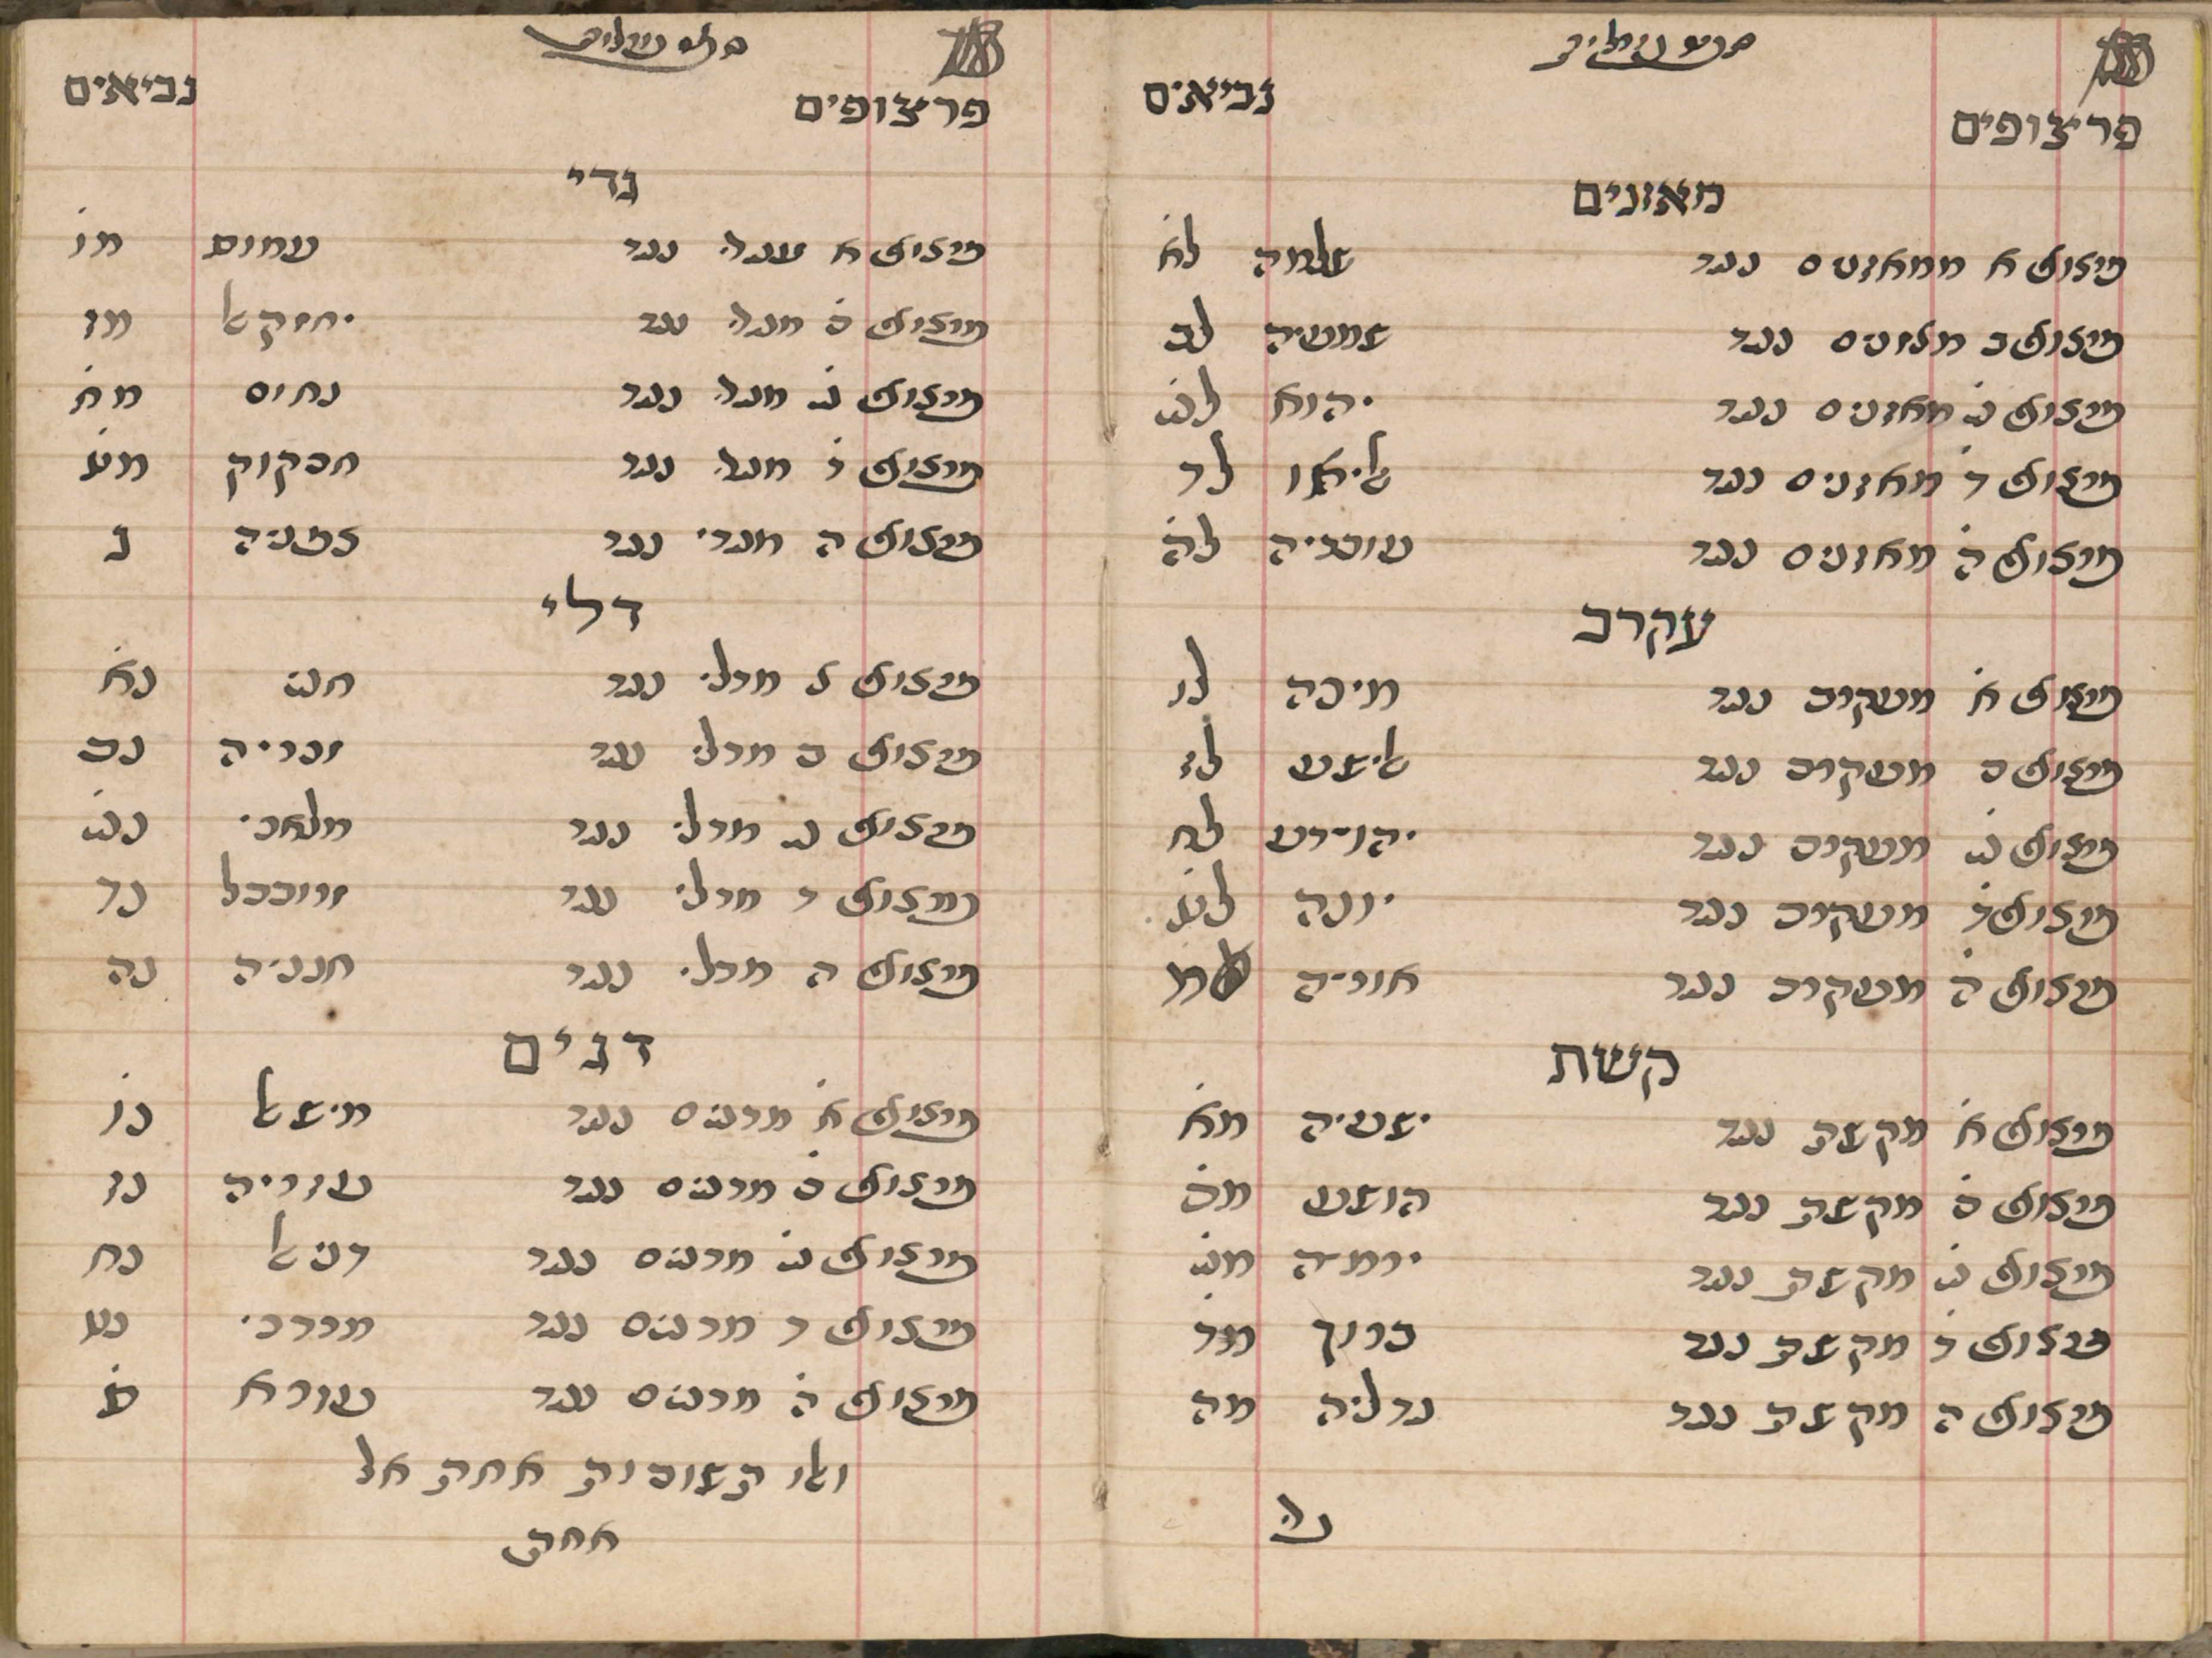 פרצופים נביאים
מאזנים
פרצוף א ממאזנים נגד שלמה לא
פרצוף ב מאזנים נגד שמעיה לב
פרצוף ג מאזנים נגד יהוא לג
פרצוף ד מאזנים נגד אליאו לד
פרצוף ה מאזנים נגד עובדיה לה
עקרב
פרצוף א מעקרב נגד מיכה לו
פרצוף ב מעקרב נגד אלישע לז
פרצוף ג מעקרב נגד יהוידע לח
פרצוף ד מעקרב נגד יונה לט
פרצוף ה מעקרב נגד אוריה מ
קשת
פרצוף א מקשת נגד ישעיה מא
פרצוף ב מקשת נגד הושע מב
פרצוף ג מקשת נגד ירמיה מג
פרצוף ד מקשת נגד ברוך מד
פרצוף ה מקשת נגד גדליה מה
גדי
פרצופים נביאים
גדי
פרצוף א מגדי נגד עמוס מו
פרצוף ב מגדי נגד יחזקאל מז
פרצוף ג מגדי נגד נחום מח
פרצוף ד מגדי נגד חבקוק מט
פרצוף ה מגדי נגד צפניה נ
דלי
פרצוף א מדלי נגד חגי נא
פרצוף ב מדלי נגד זכריה נב
פרצוף ג מדלי נגד מלאכי נג
פרצוף ד מדלי נגד זרובבל נד
פרצוף ה מדלי נגד חנניה נה
דגים
פרצוף א מדגים נגד מישאל נו
פרצוף ב מדגים נגד עזריה נז
פרצוף ג מדגים נגד דניאל נח
פרצוף ד מדגים נגד מרדכי נט
פרצוף ה מדגים נגד עזרא ס
ואלו תשובות אחת אל
אחת